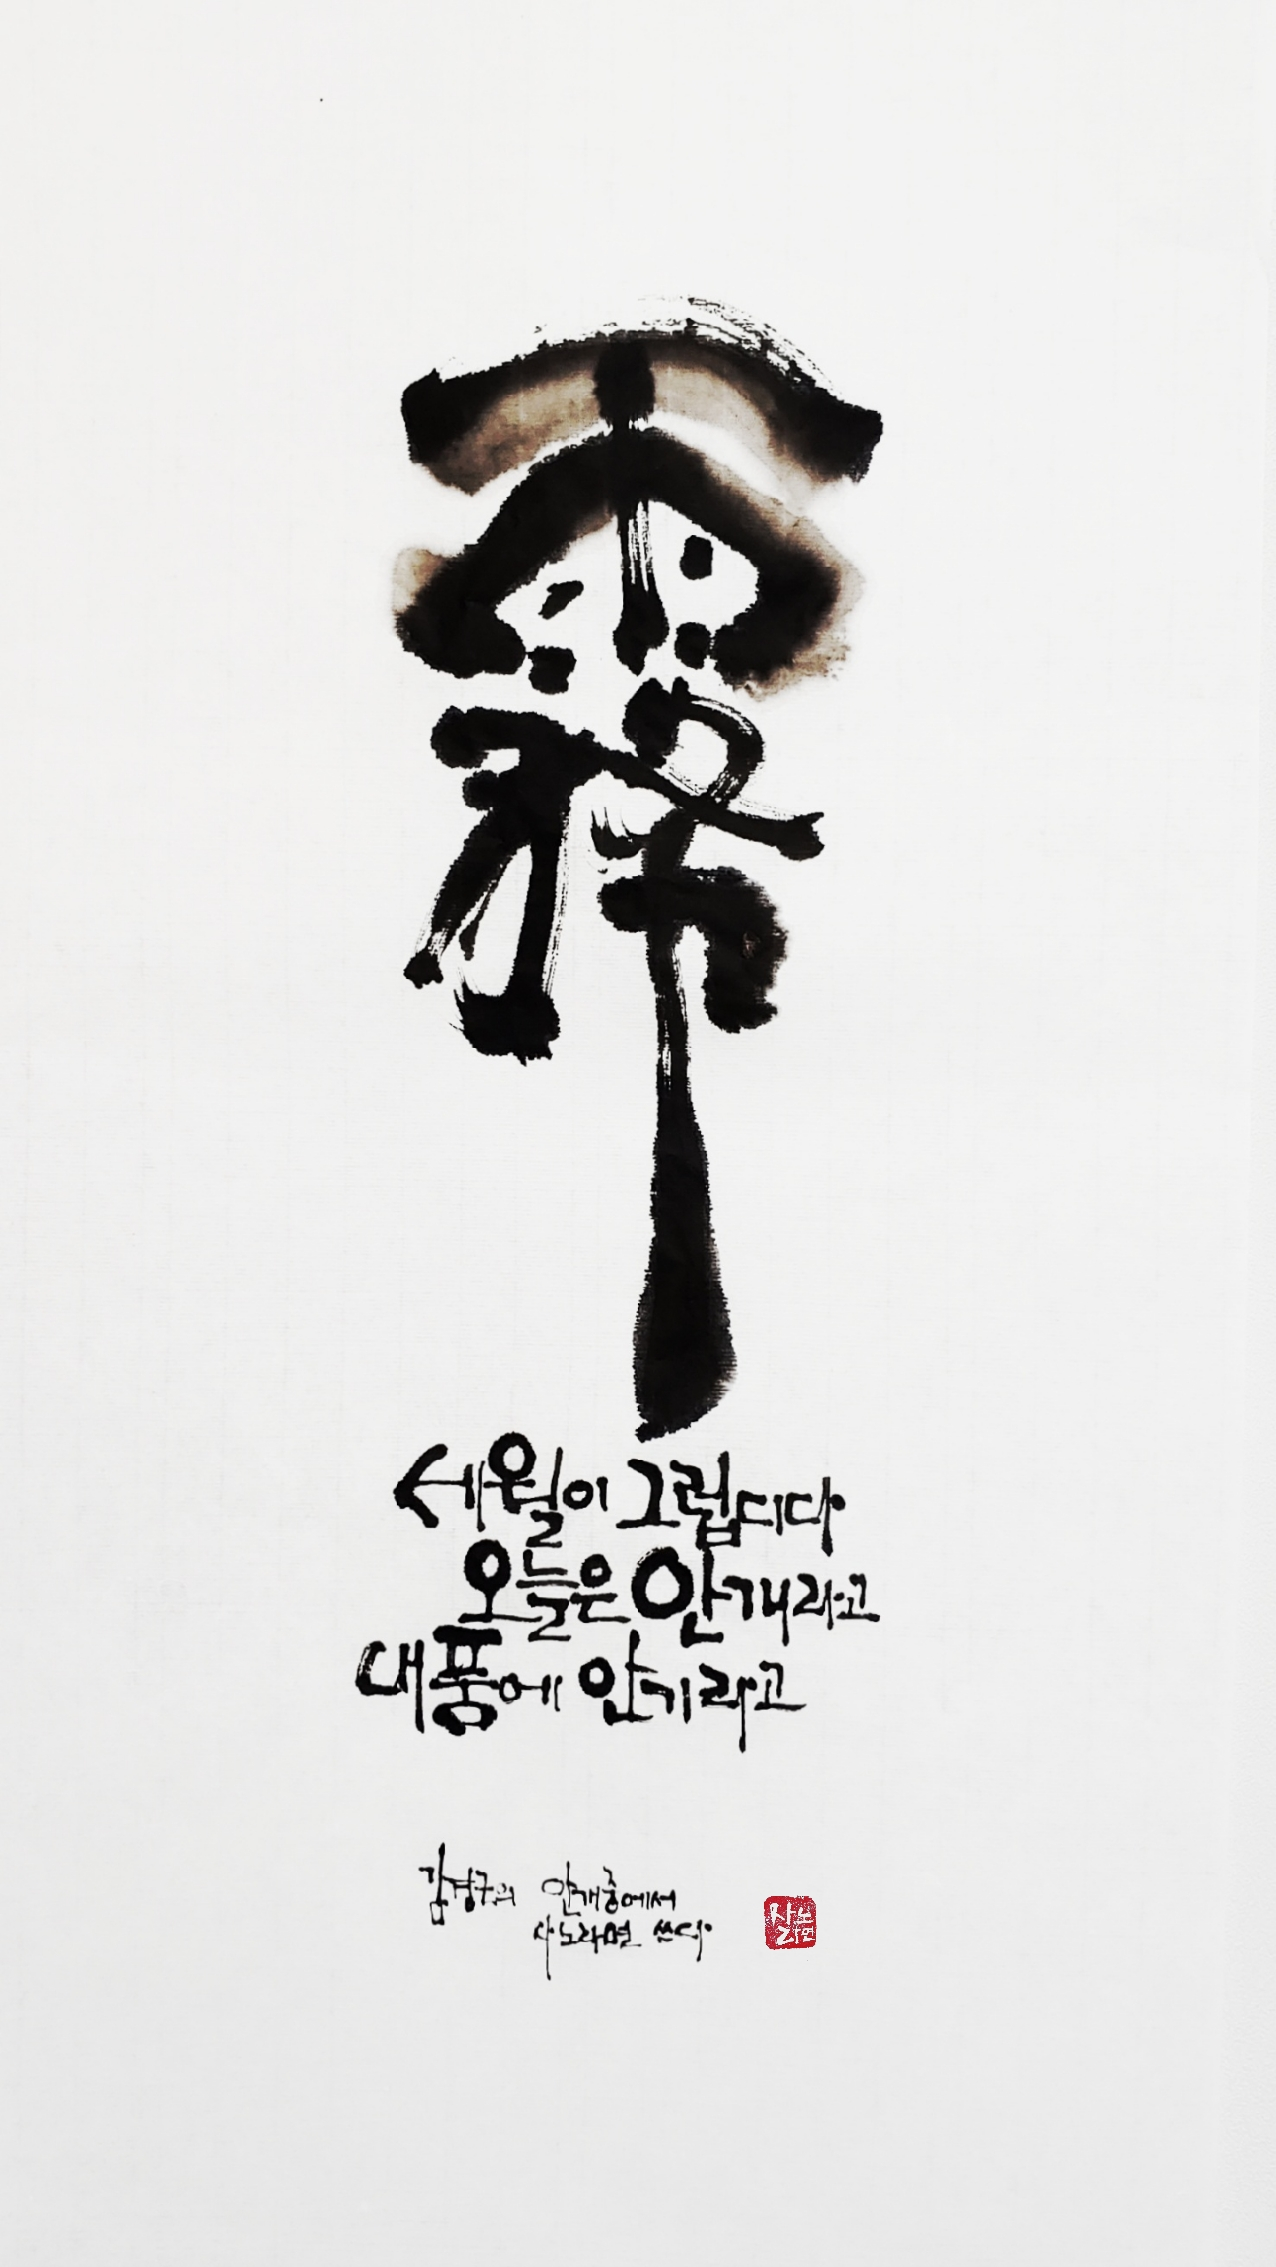 霧
세월이 그럽디다
오늘은 안개라고
내품에 안기라고
김경구의 안개중에서
사노라면 쓰다
사노
라면